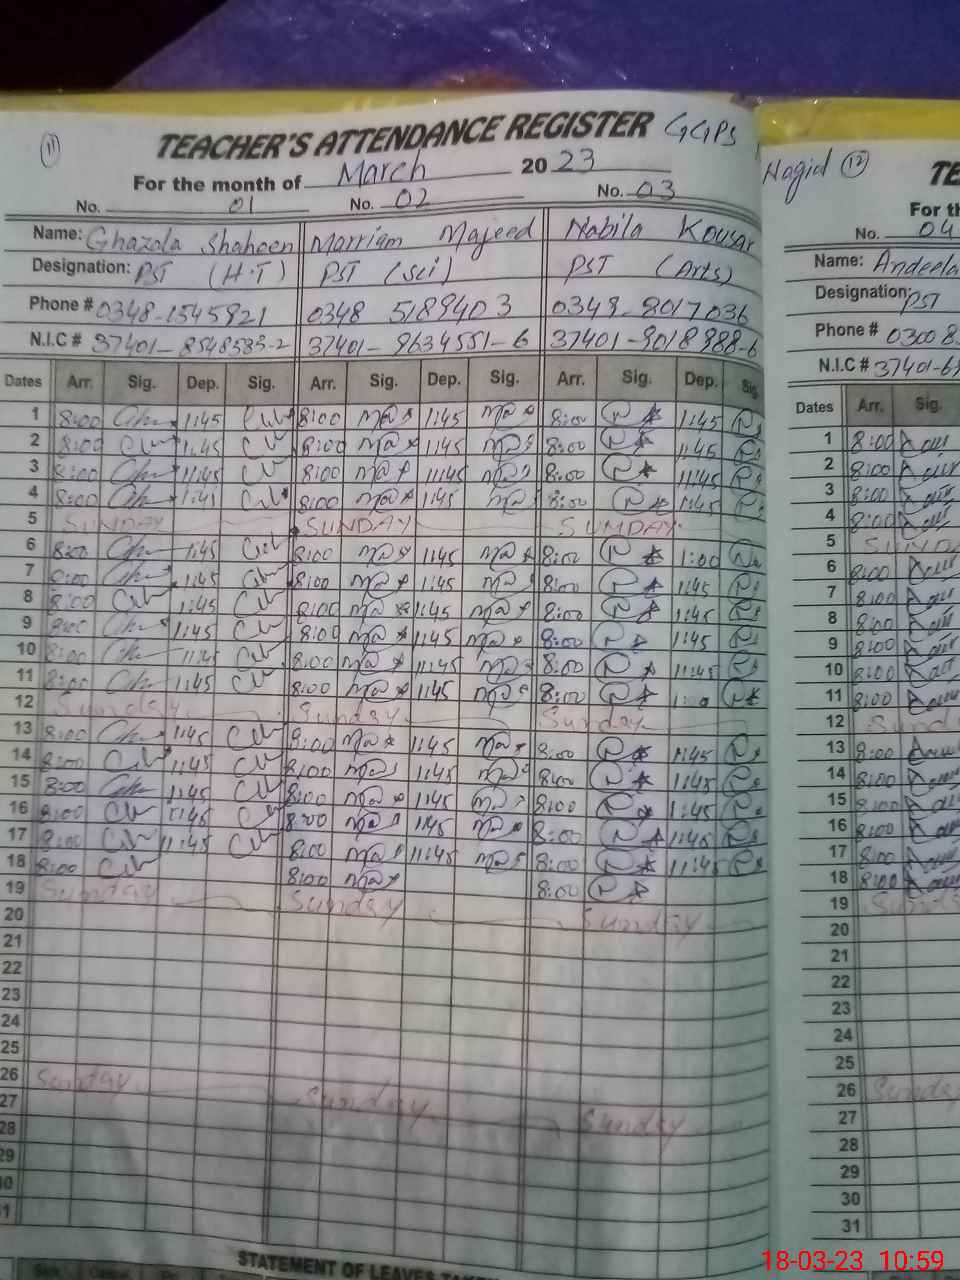 11
TEACHER'S ATTENDANCE REGISTER GGPS
For the month of March 2023
No. 01 No. 02 No. 03
Name: Ghazala Shaheen Marriam Majeed Nabila Kousar
Designation: PST (H.T) PST (Sci) PST (Arts)
Phone # 0348-1545921 0348 5189403 0349-8017036
N.I.C # 37401-8548583-2 37401-9634551-6 37401-9018988-6
Dates Arr. Sig. Dep. Sig. Arr. Sig. Dep. Sig. Arr. Sig. Dep. Sig
1 8:00 1:45 8:00 1:45 8:00 1:45
2 8:00 1:45 8:00 1:45 8:00 1:45
3 8:00 11:45 8:00 11:45 8:00 11:45
4 8:00 1:45 8:00 1:45 8:00 1:45
5 SUNDAY SUNDAY SUNDAY
6 8:00 1:45 8:00 1:45 8:00 1:00
7 8:00 1:45 8:00 1:45 8:00 1:45
8 8:00 1:45 8:00 1:45 8:00 1:45
9 8:00 1:45 8:00 1:45 8:00 1:45
10 8:00 11:45 8:00 11:45 8:00 11:45
11 8:00 1:45 8:00 1:45 8:00
12 Sunday Sunday Sunday
13 8:00 1:45 8:00 1:45 8:00 1:45
14 8:00 1:45 8:00 1:45 8:00 1:45
15 8:00 1:45 8:00 1:45 8:00 1:45
16 8:00 1:45 8:00 1:45 8:00 11:45
17 8:00 11:45 8:00 11:45 8:00 11:45
18 8:00 8:00 8:00
19 Sunday Sunday Sunday
20
21
22
23
24
25
26 Sunday Sunday Sunday
27
28
29
30
31
STATEMENT OF LEAVES
Hagid 12
TE
For th
No. 04
Name: Andeela
Designation: PST
Phone # 0300 8
N.I.C # 37401-6
Dates Arr. Sig.
1 8:00
2 8:00
3 8:00
4 8:00
5 SUNDA
6 8:00
7 8:00
8 8:00
9 8:00
10 8:00
11 8:00
12 Sunda
13 8:00
14 8:00
15 8:00
16 8:00
17 8:00
18 8:00
19 Sunda
20
21
22
23
24
25
26 Sunday
27
28
29
30
31
18-03-23 10:59